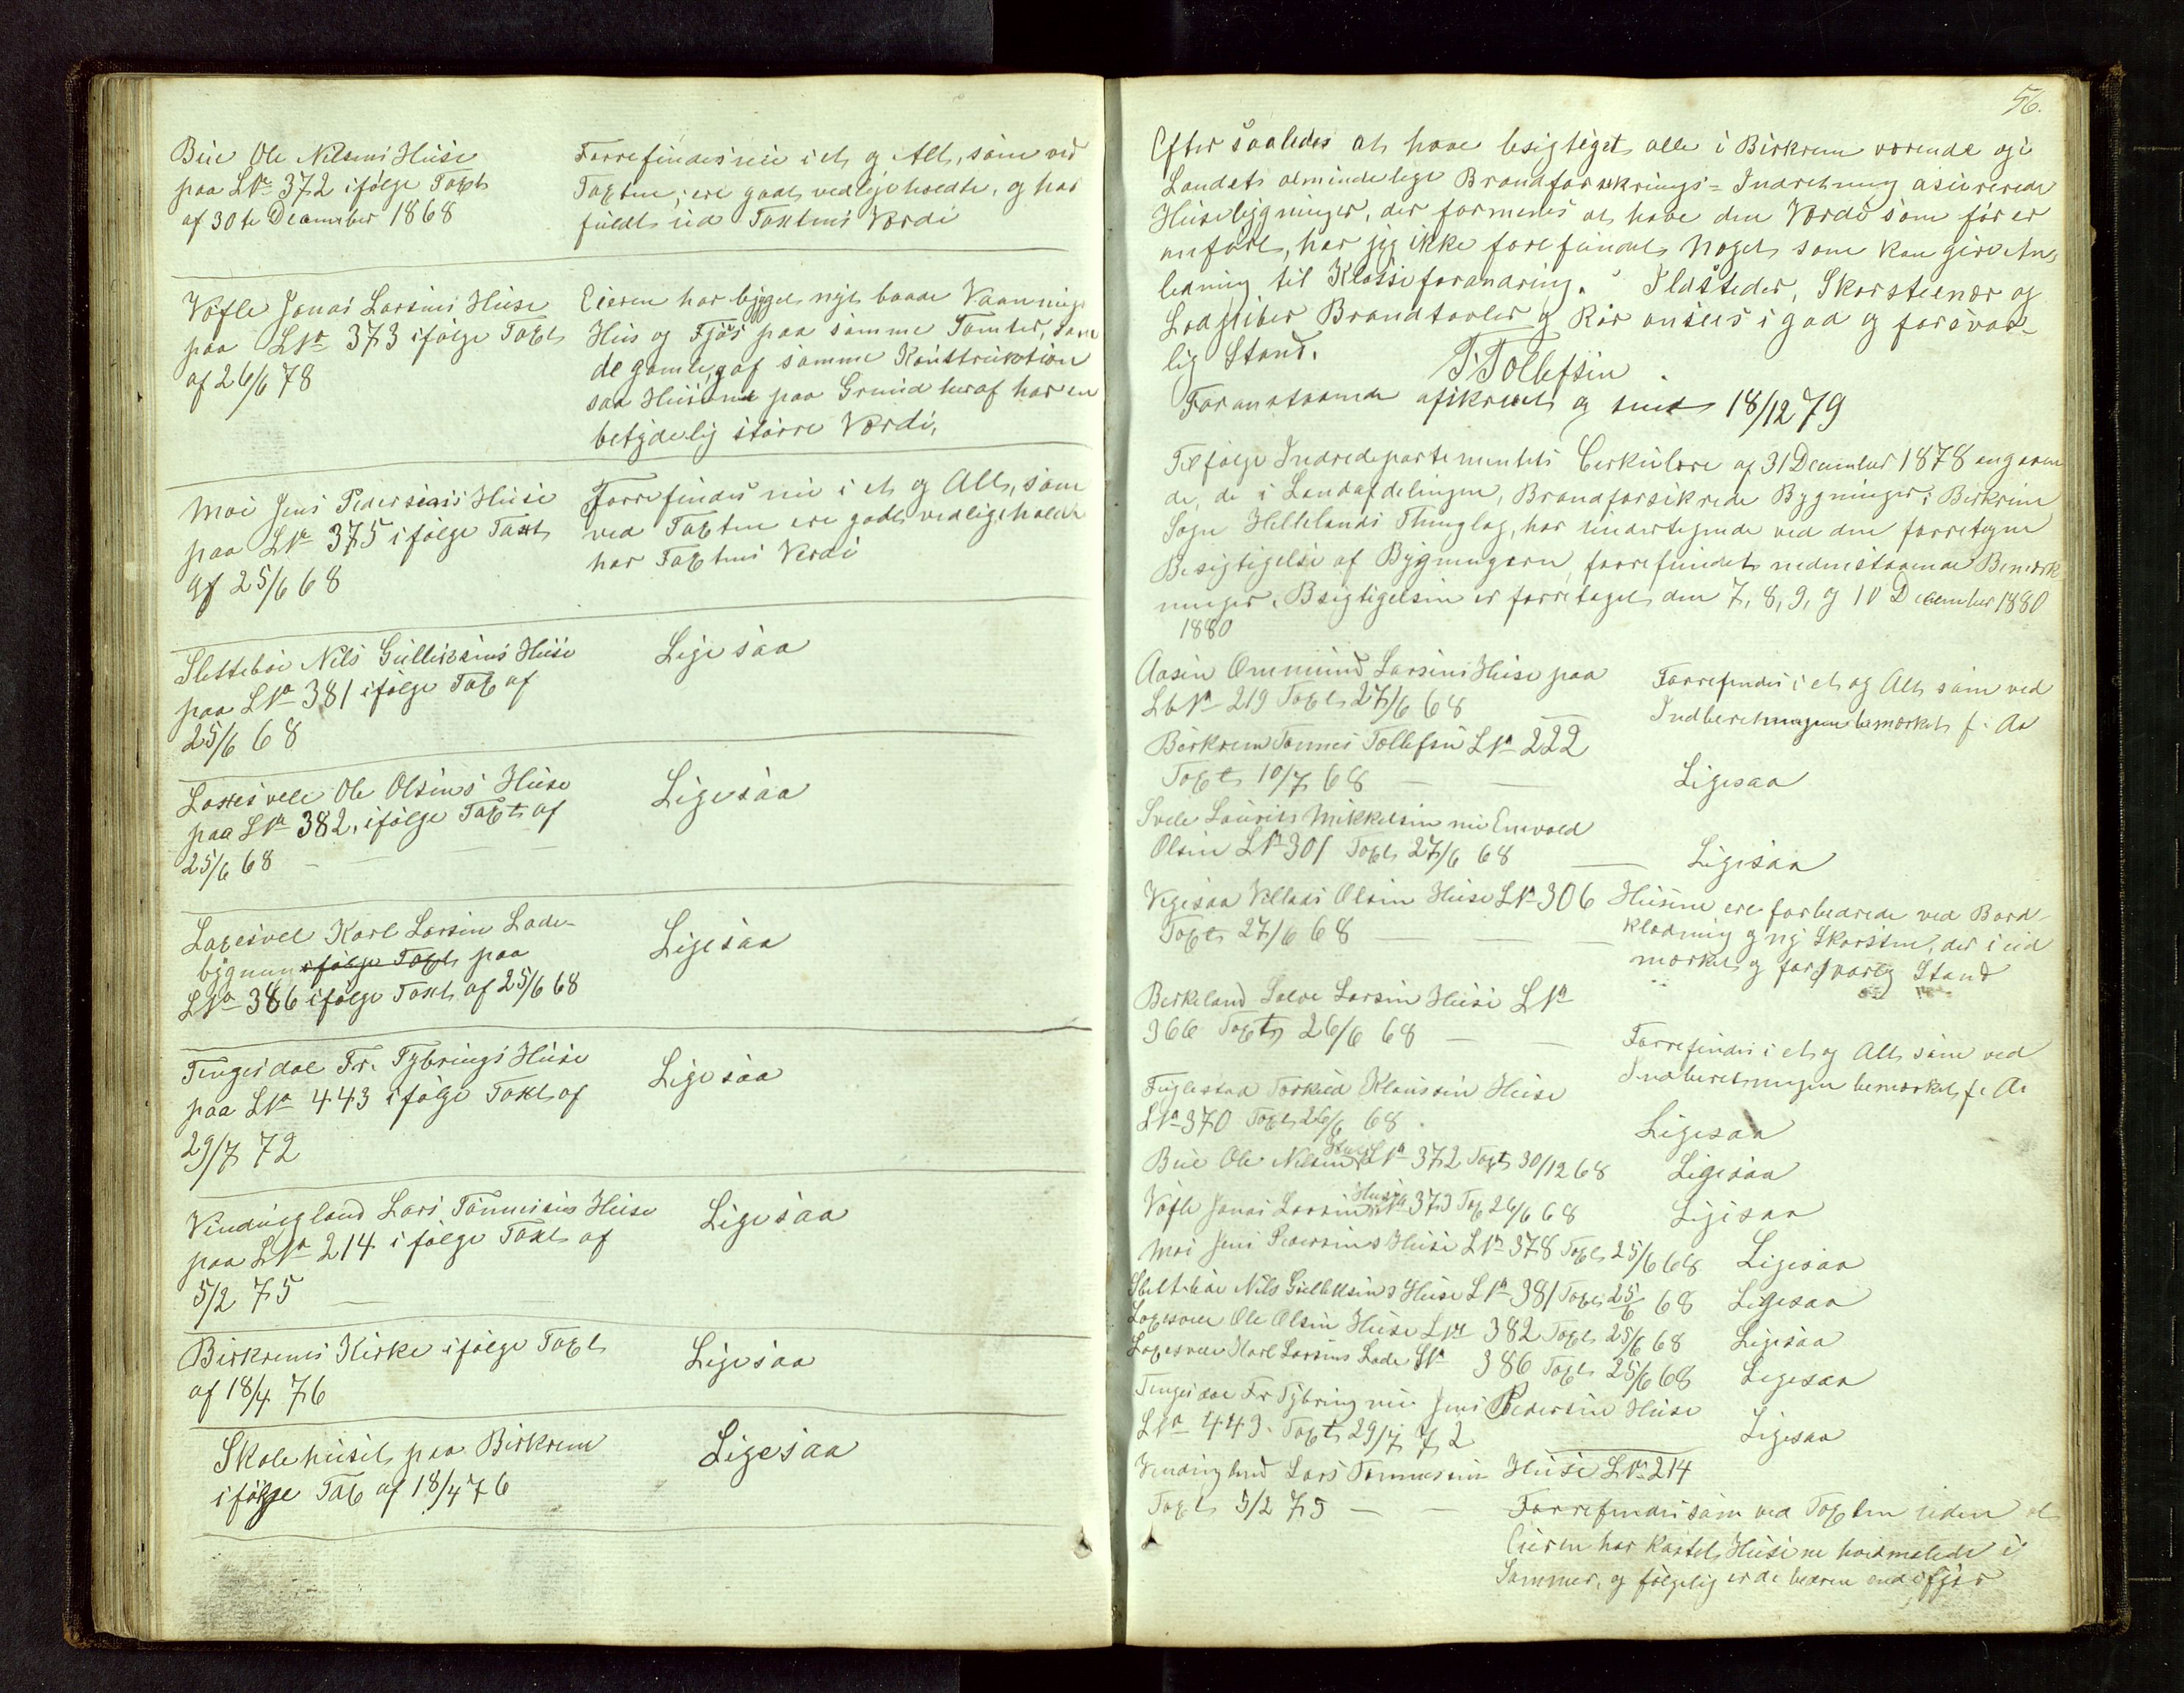 Bue Ole Nilsens Huse
paa LNo 372 ifølge Taxt
af 30te December 1868
Forrefindes nu i et og Alt, som ved
Taxten, ere godt vedligeholdte, og har
fuldt ud Taxtens Værdi
Vofle Jonas Larsens Huse
paa LNo 373 ifølge Taxt
af 26/6 78
Eieren har bygget nyt baade Vaanings
Hus og Fjøs paa samme Tomter, som
de gamle, og af samme Konstruktion
saa Husene paa Grund heraf har en
betydelig større Værdi.
Moi Jens Pedersens Huse
paa LNo 375 ifølge Taxt
af 25/6 68
Forrefindes nu i et og Alt, som
ved Taxten ere godt vedligeholdt
har Taxtens Verdi
Slettebøe Nils Gulliksens Huse
paa LNo 381 ifølge Tax af
25/6 68
Ligesaa
Laxesvele Ole Olsens Huse
paa LNo 382, ifølge Taxt af
25/6 68 — — —
Ligesaa
Laxesvel Karl Larsen Lade-
bygnung ifølge Taxt paa
LNo 386 ifølge Taxt af 25/6 68
Ligesaa
Tengesdal Fr. Tybrings Huse
paa LNo 443 ifølge Taxt af
29/7 72
Ligesaa
Vinduegland Lars Tønnesens Huse
paa LNo 214 ifølge Taxt af
5/2 75 —
Ligesaa
Birkrems Kirke ifølge Taxt
af 18/4 76
Ligesaa
Skolehuset paa Birkrem
ifølge Tax af 18/4 76
Ligesaa
56.
Efter saaledes at have besigtiget alle i Birkrem værende og i
Landets almindelige Brandforsikrings-Indretning asurerede
Husebygninger, der formenes at have den Værdi som før er
anført, har jeg ikke forefundet Noget som kan give An-
ledning til Klasseforandring. Ildsteder, Skorstener og
Brandtavler og Rør ansees i god og forsvar-
lig Stand.
T Tollefsen
Foranstaaende afskrevet og sendt 18/12 79
Ifølge Indredepartementets Cirkulære af 31 December 1878 angaaen
de, de i Landafdelingen, Brandforsikrede Bygninger i Birkrem
Sogn Hellelands Thinglag, har undertegnede ved den forretagne
Besigtigelse af Bygningerne, forrefundet nedenstaaende Bemærk
ninger. Besigtigelsen er forretaget den 7, 8, 9, og 10 December 1880
1880
Aasen Ommund Larsens Huse paa
LbNo 219 Taxt 27/6 68
Forrefindes i et og Alt som ved
Indberetningen bemærket f. Aa
Birkrem Tønnes Tollefsen LNo 222
Taxt 10/7 68 — —
Ligesaa
Svele Laurits Mikkelsen nu Enevald
Olsen LNo 301 Taxt 27/6 68 —
Ligesaa
Vegesaa Villads Olsen Huse LNo 306
Taxt 27/6 68 — — —
Husene ere forbedrede ved Bord-
klædning og ny Skorsten, der i ud
mærket og forsvarlig Stand
Birkeland Salve Larsen Huse LNo
366 Taxt 26/6 68 — —
Forrefindes i et og Alt som ved
Indberetningen bemærket f. Aa
Fuglestad Torkild Klaussen Huse
LNo 370 Taxt 26/6 68.
Ligesaa
Bue Ole Nilsen Huse LNo 372 Taxt 30/12 68
Ligesaa
Vofle Jonas Larsen Huse LNo 373 Tax 26/6 68
Ligesaa
Moi Jens Pedersens Huse LNo 378 Taxt 25/6 68
Ligesaa
Slettebøe Nils Gulliksens Huse LNo 381 Taxt 25/6 68
Ligesaa
Laxesvele Ole Olsen Huse LNo 382 Taxt 25/6 68
Ligesaa
Laxesvele Karl Larsens Lade LNo 386 Taxt 25/6 68
Ligesaa
Tengesdal Fr Tybring nu Jens Pedersen Huse
LNo 443. Taxt 29/7 72
Ligesaa
Vinduegland Lars Tønnesen Huse LNo 214
Taxt 5/2 75 — —
Forrefindes som ved Taxten uden at
Eieren har Husene hvidmalede i
Sommer, og følgelig er de bedre end ifjor